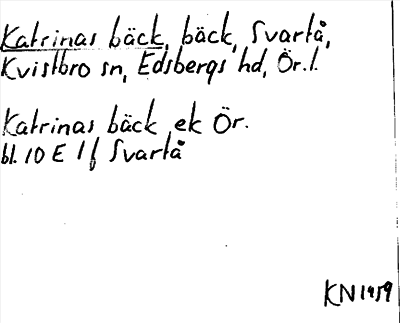 Katrinas bäck, bäck, Svartå,
Kvistbro sn, Edsbergs hd, Ör. l.
Katrinas bäck ek Ör.
bl. 10 E 1 f Svartå
KN 1959